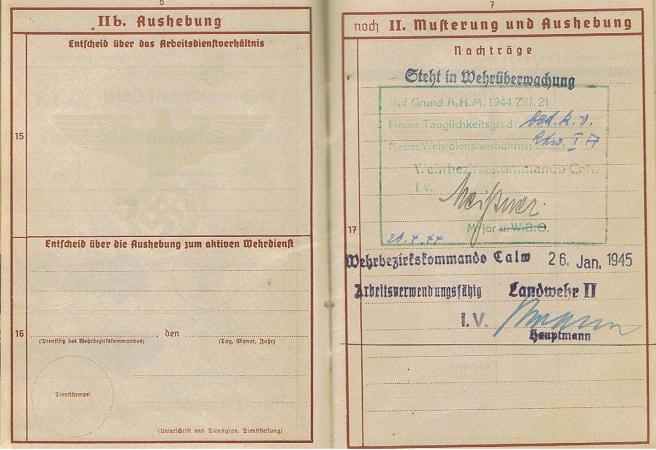 6
IIb. Aushebung
Entscheid über das Arbeitsdienstverhältnis
15
Entscheid über die Aushebung zum aktiven Wehrdienst
16
, den
(Dienstsitz des Wehrbezirkskommandos) (Tag, Monat, Jahr)
Dienststempel
(Unterschrift und Dienstgrad, Dienststellung)
7
noch II. Musterung und Aushebung
Nachträge
Steht in Wehrüberwachung
Auf Grund A.H.M. 1944 Ziff. 21
Neuer Tauglichkeitsgrad: bed. k. v.
Neues Wehrdienstverhältnis: Ldw. I
Wehrbezirkskommando Calw
I.V.
Meißner.
Major u. W.B.O.
17
Wehrbezirkskommando Calw 26. Jan. 1945
Arbeitsverwendungsfähig Landwehr II
I.V.
Hauptmann